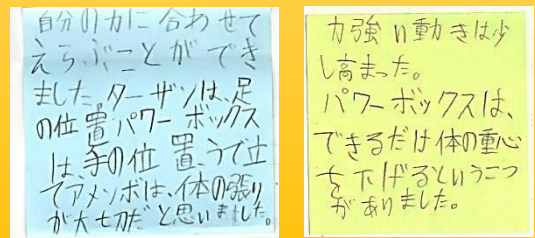 自分の力に合わせて
えらぶことができ
ました。ターザンは、足
の位置、パワーボックス
は、手の位置、うで立
てアメンボは、体の張り
が大切だと思いました。
力強い動きは少
し高まった。
パワーボックスは、
できるだけ体の重心
を下げるというこつ
がありました。